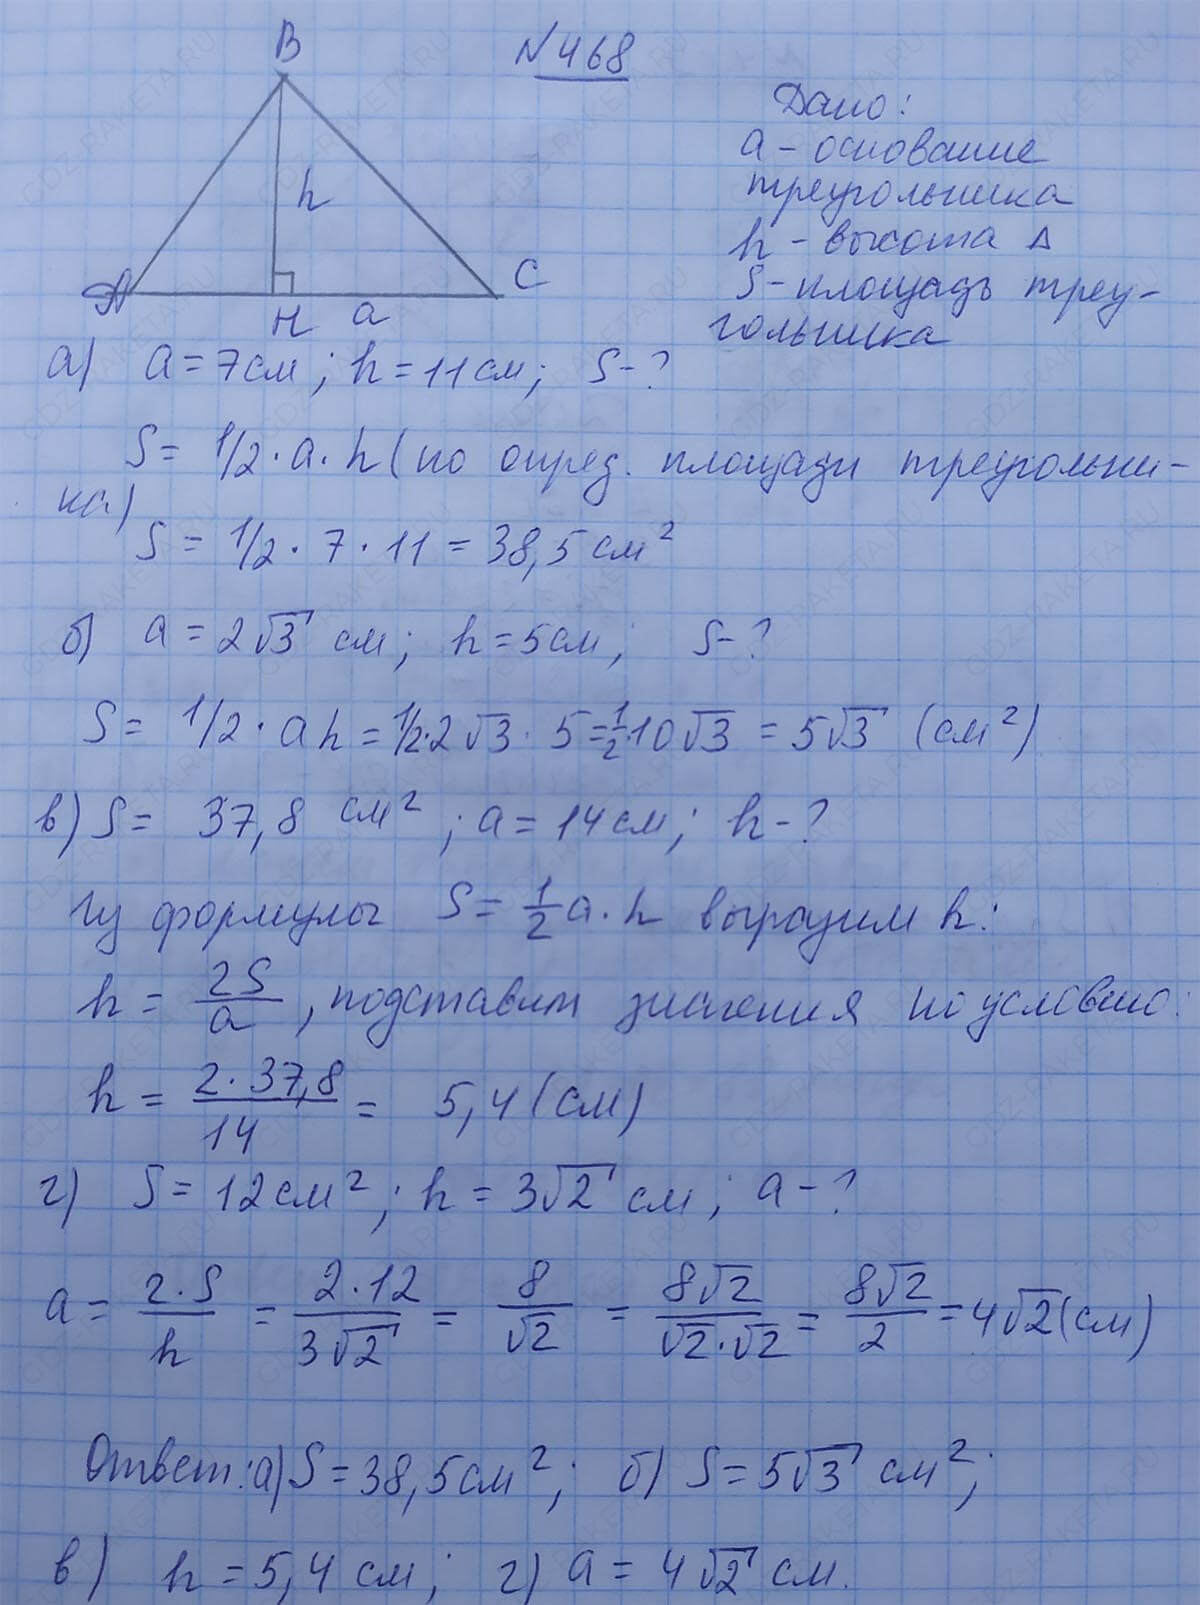 B
N468
Дано:
a - основание
треугольника
h - высота Δ
S - площадь треу-
гольника
h
A
C
H a
а) a = 7 см; h = 11 см; S - ?
S = 1/2 · a · h (по опред. площади треугольни-
ка)
S = 1/2 · 7 · 11 = 38,5 см²
б) a = 2√3 см; h = 5 см; S - ?
S = 1/2 · a h = 1/2 · 2√3 · 5 = 1/2 · 10√3 = 5√3 (см²)
в) S = 37,8 см²; a = 14 см; h - ?
Из формулы S = 1/2 a · h выразим h:
h = 2S/a, подставим значения по условию:
h = 2 · 37,8/14 = 5,4 (см)
г) S = 12 см²; h = 3√2 см; a - ?
a = 2 · S/h = 2 · 12/3√2 = 8/√2 = 8√2/√2 · √2 = 8√2/2 = 4√2 (см)
Ответ: а) S = 38,5 см²; б) S = 5√3 см²;
в) h = 5,4 см; г) a = 4√2 см.
GDZ-RAKETA.RU